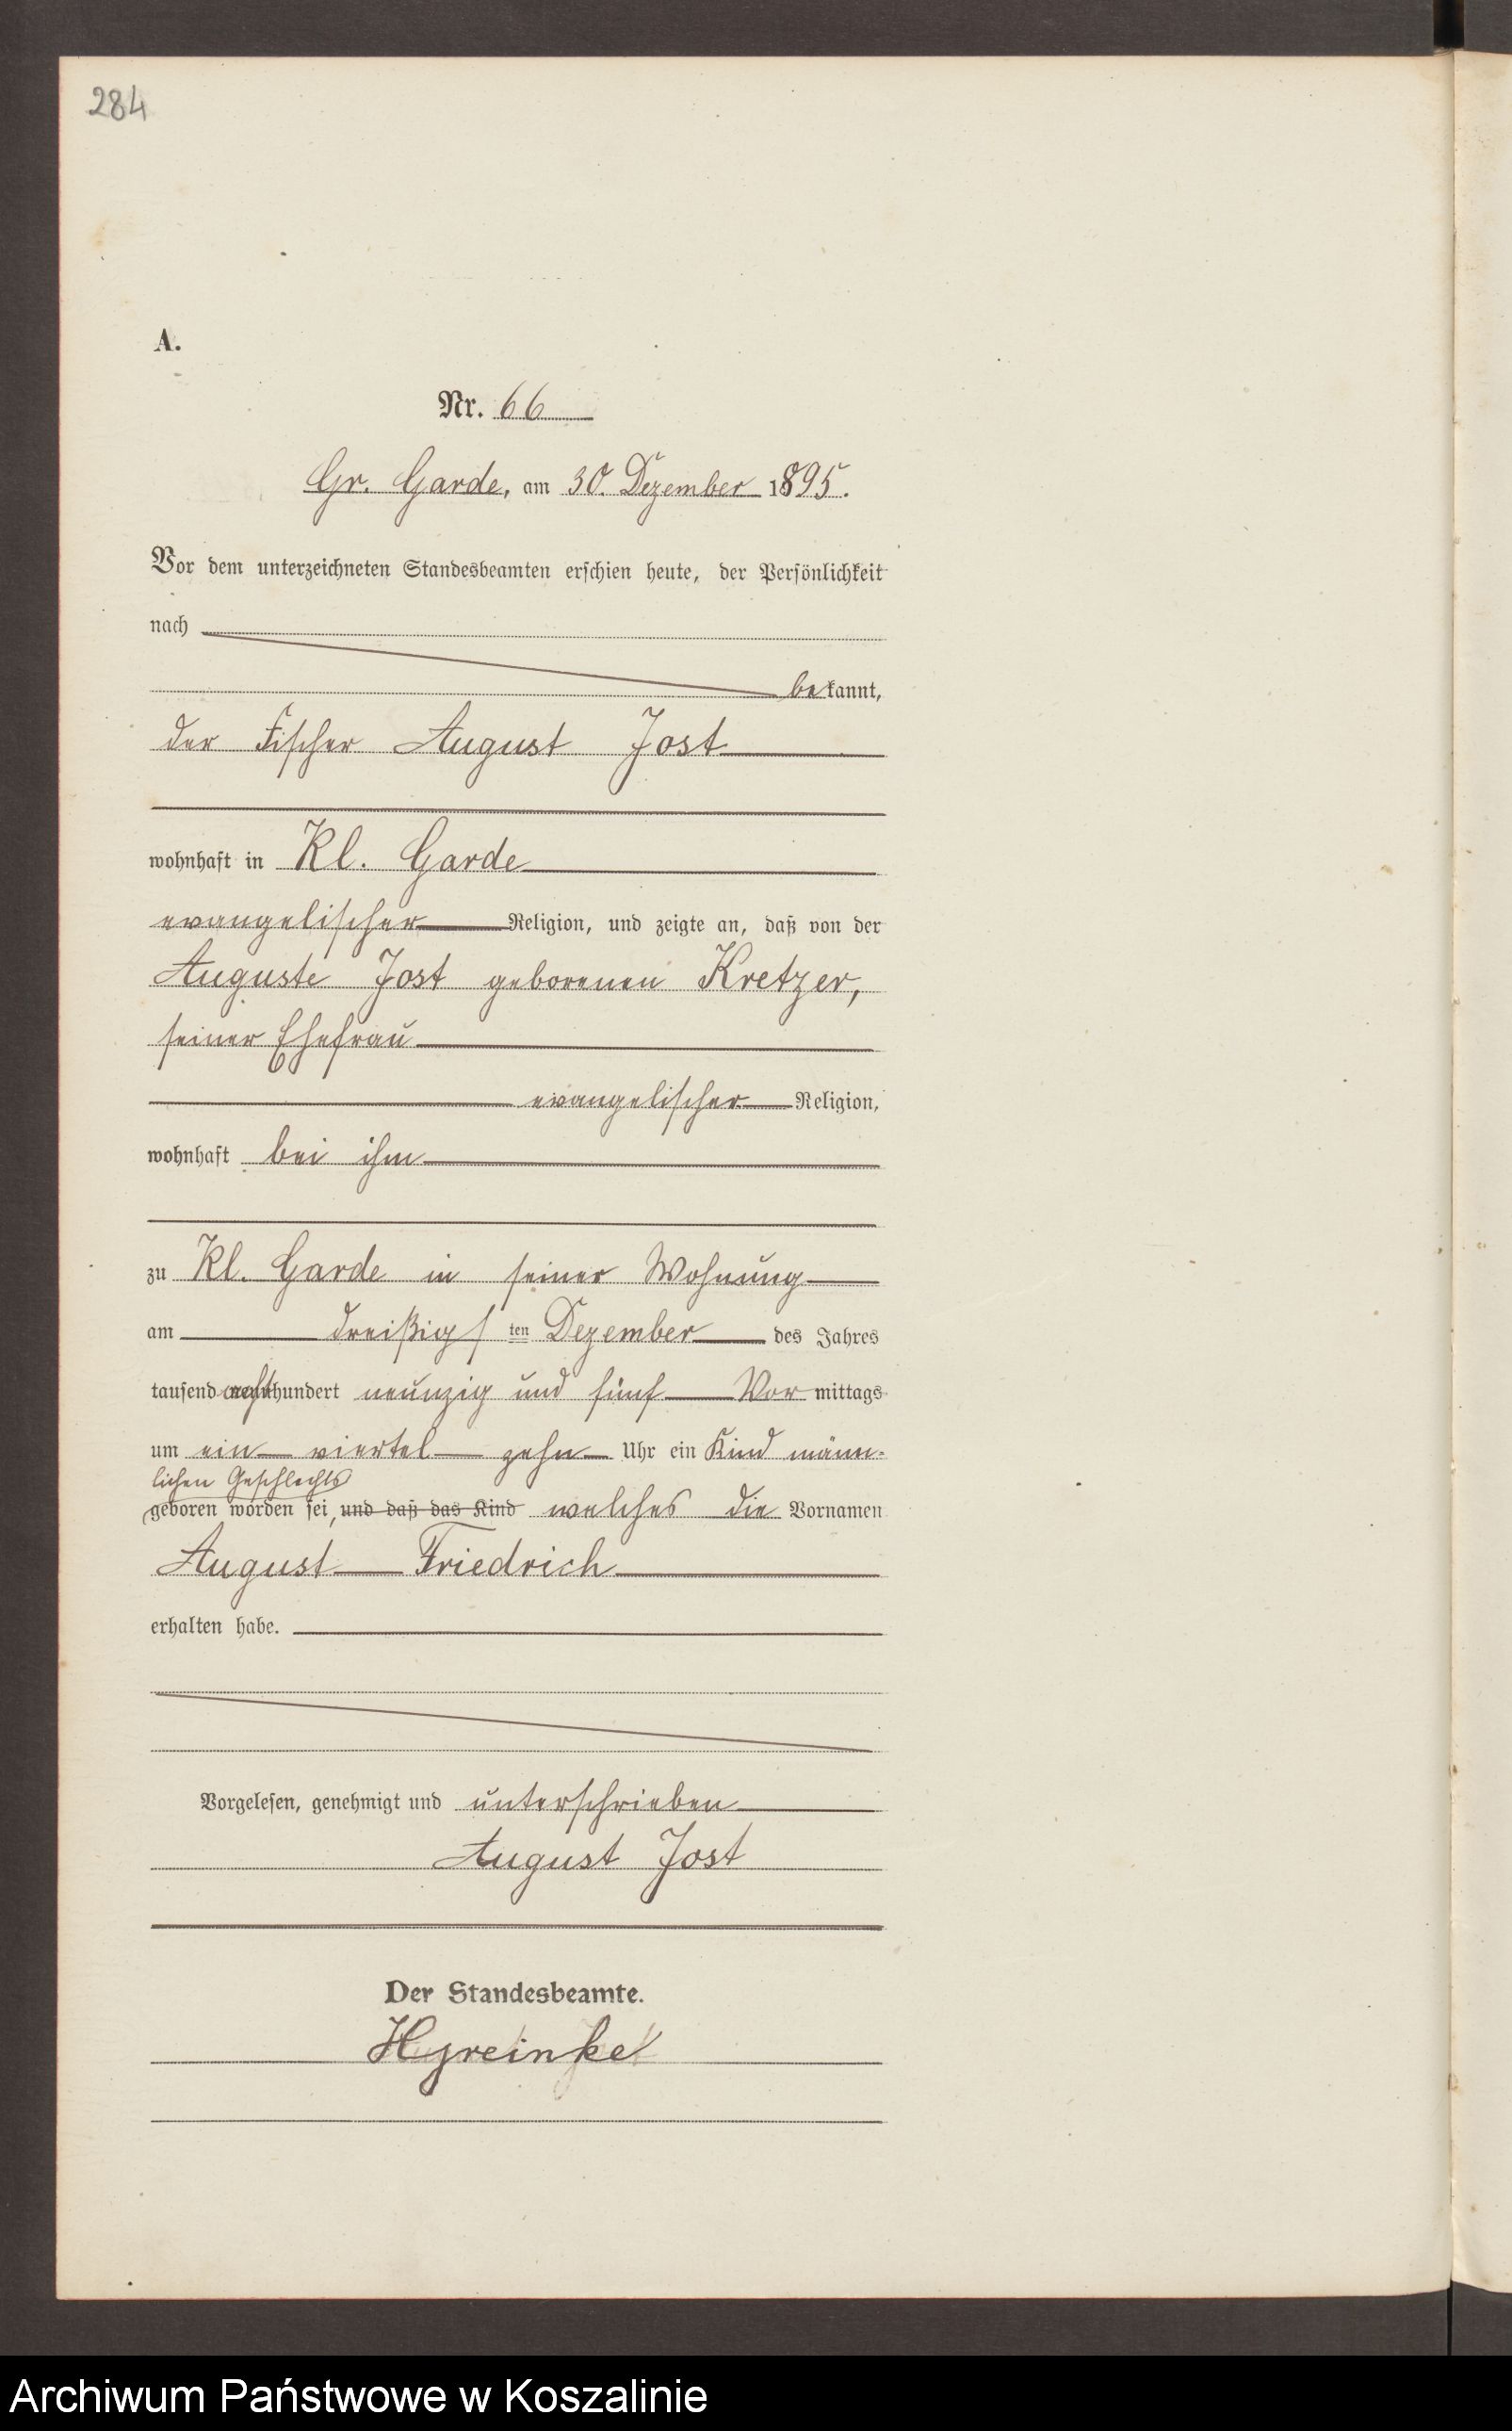 284
A.
Nr. 66
Gr. Garde, am 30. Dezember 1895.
Vor dem unterzeichneten Standesbeamten erschien heute, der Persönlichkeit
nach
bekannt,
der Fischer August Jost
wohnhaft in Kl. Garde
evangelischer Religion, und zeigte an, daß von der
Auguste Jost geborenen Kretzer,
seiner Ehefrau
evangelischer Religion,
wohnhaft bei ihm
zu Kl. Garde in seiner Wohnung
am dreißigsten Dezember des Jahres
tausend achthundert neunzig und fünf Vormittags
um ein viertel zehn Uhr ein Kind männ-
lichen Geschlechts
geboren worden sei, und daß das Kind welches die Vornamen
August Friedrich
erhalten habe.
Vorgelesen, genehmigt und unterschrieben
August Jost
Der Standesbeamte.
Archiwum Państwowe w Koszalinie